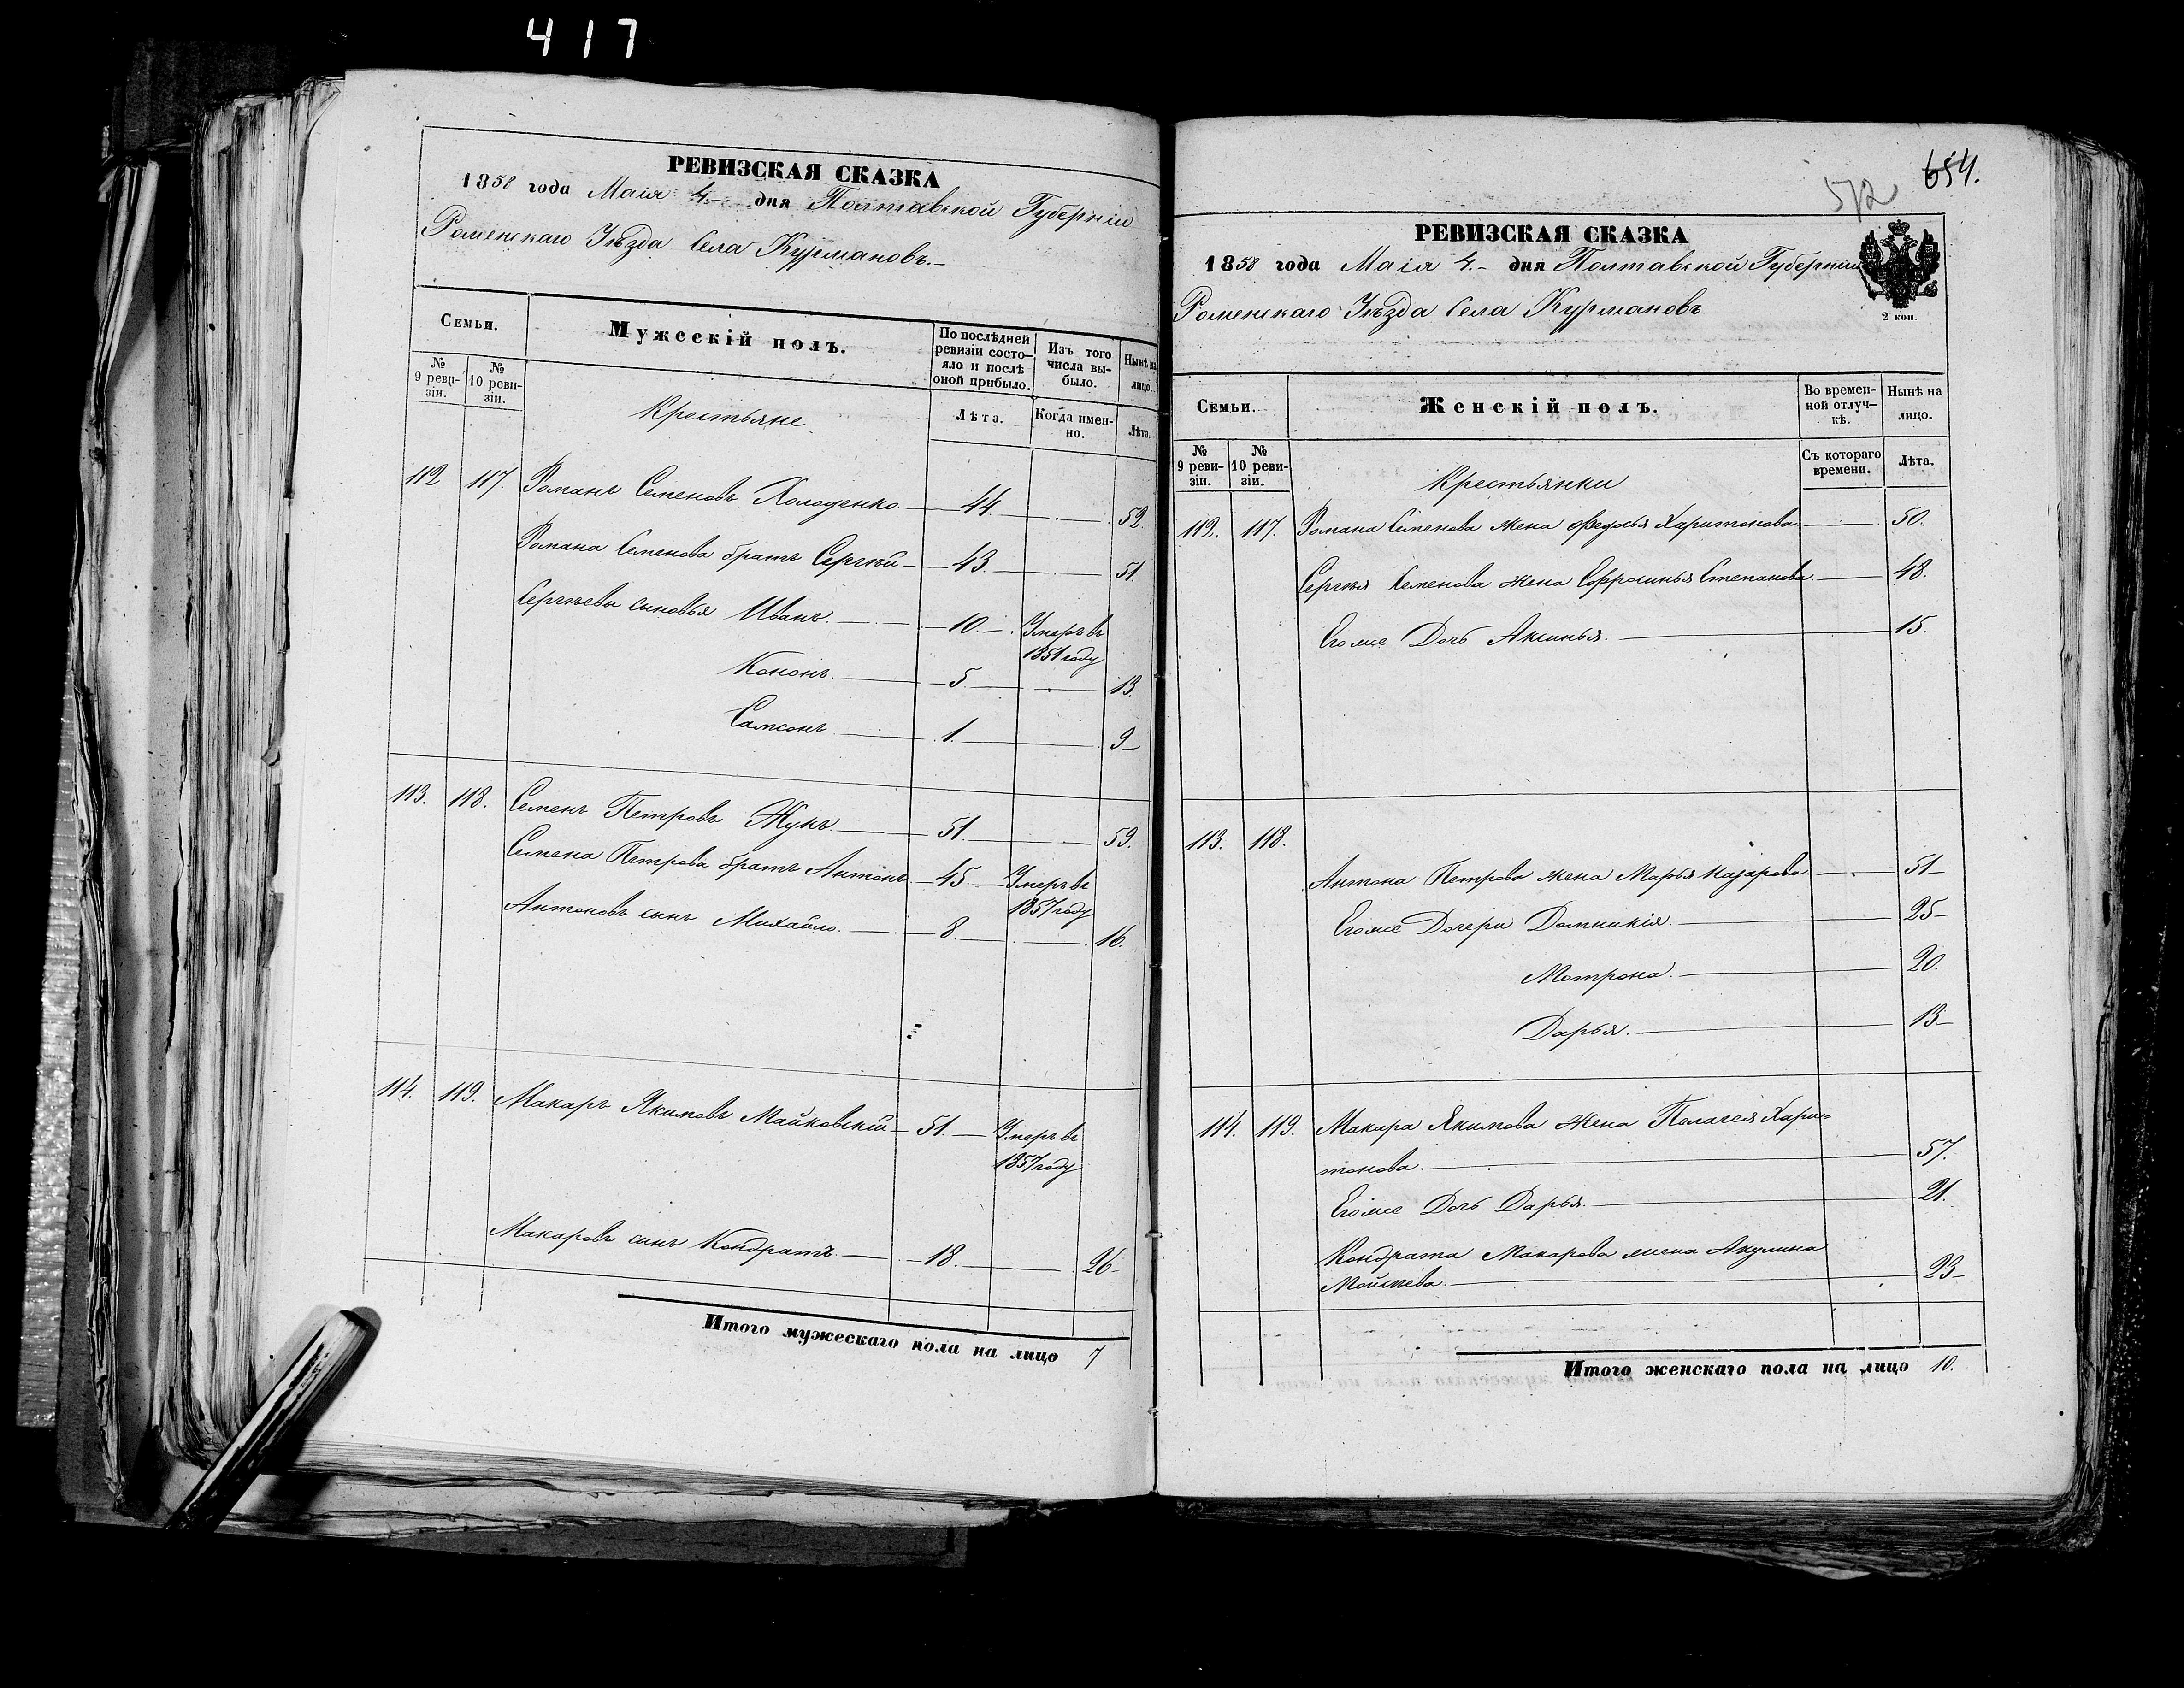 417
РЕВИЗСКАЯ СКАЗКА
1858 года Маія 4.- дня Полтавской Губерніи
Роменскаго Уѣзда Села Курмановъ.-
Семьи.
Мужескій полъ.
По послѣдней ревизіи состо-яло и послѣ оной прибыло.
Изъ того числа вы-было.
Нынѣ на лицо.
№ 9 реви-зіи.
№ 10 реви-зіи.
Лѣта.
Когда имен-но.
Лѣта.
Крестьяне
112 117. Романъ Семеновъ Холоденко 44. 52.
Романа Семенова братъ Сергѣй 43. 51.
Сергѣевы сыновья Иванъ. 10. Умеръ въ
1851 году
Кононъ. 5. 13.
Самсонъ 1. 9
113. 118. Семенъ Петровъ Жукъ. 51. 59.
Семена Петрова братъ Антонъ 45. Умеръ въ
1857 году
Антоновъ сынъ Михайло. 8. 16.
114. 119. Макаръ Якимовъ Майковскій 51. Умеръ въ
1857 году
Макаровъ сынъ Кондратъ. 18. 26
Итого мужескаго пола на лицо 7
572 654.
РЕВИЗСКАЯ СКАЗКА
1858 года Маія 4.- дня Полтавской Губерніи
Роменскаго Уѣзда Села Курмановъ
2 коп.
Семьи.
Женскій полъ.
Во времен-ной отлуч-кѣ.
Нынѣ на лицо.
№ 9 реви-зіи.
№ 10 реви-зіи.
Съ котораго времени.
Лѣта.
Крестьянки
112. 117. Романа Семенова жена Федосья Харитонова 50.
Сергѣя Семенова жена Ефросинья Степанова 48.
Егоже Дочь Аксинья. 15.
113. 118.
Антона Петрова жена Марья Назарова 51
Егоже Дочери Домникія. 25
Мотрона. 20.
Дарья. 13
114. 119. Макара Якимова жена Пелагея Хари-
тонова. 57.
Егоже Дочь Дарья. 21.
Кондрата Макарова жена Акулина
Мойсѣева. 23
Итого женскаго пола на лицо 10.